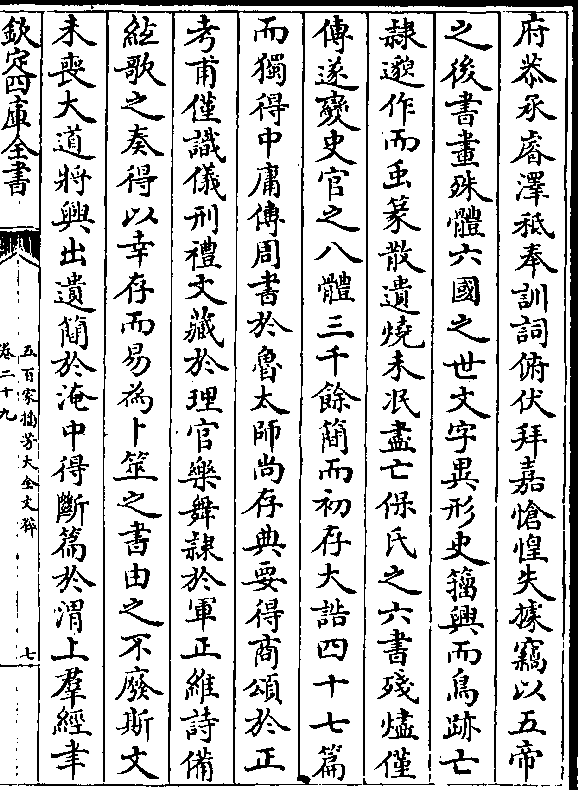 府恭承睿澤祗奉訓詞俯伏拜嘉愴惶失據竊以五帝
之後書畫殊體六國之世文字異形史籀興而鳥跡亡
隷邈作而䖝篆散遺燒未泯盡亡保氏之六書殘燼僅
傳遂變史官之八體三千餘簡而初存大誥四十七篇
而獨得中庸傳周書於魯太師尚存典要得商頌於正
考甫僅識儀刑禮文藏於理官樂舞隷於軍正維詩備
絃歌之奏得以幸存而易為卜筮之書由之不廢斯文
未喪大道將興出遺簡於淹中得斷篇於渭上羣經聿
欽定四庫全書
五百家播芳大全文粹
卷二十九
七